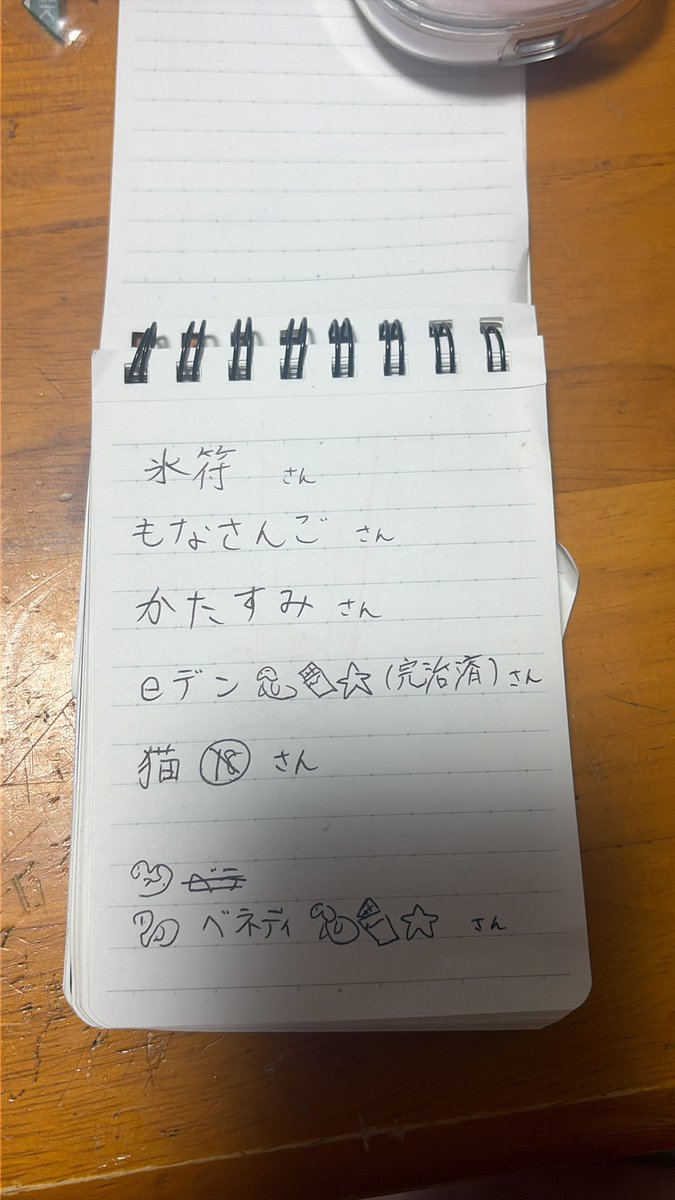 氷符 さん
もなさんご さん
かたすみ さん
eデン (完治済) さん
猫 さん
ベネディ さん